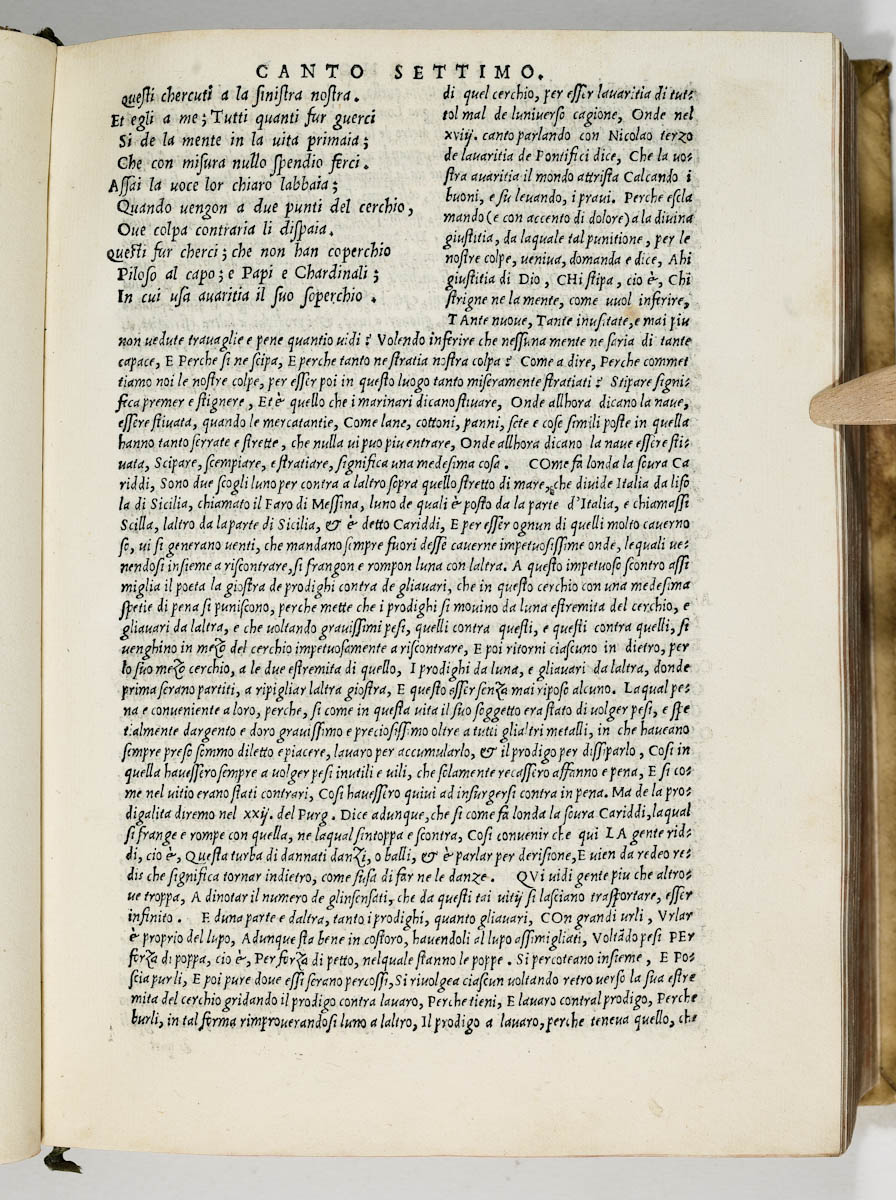 CANTO SETTIMO.
Questi chercuti a la sinistra nostra.
Et egli a me; Tutti quanti fur guerci
Si de la mente in la uita primaia;
Che con misura nullo spendio ferci.
Assai la uoce lor chiaro labbaia;
Quando uengon a due punti del cerchio,
Oue colpa contraria li dispaia.
Questi fur cherci; che non han coperchio
Piloso al capo; e Papi e Chardinali;
In cui usa auaritia il suo soperchio.
di quel cerchio, per esser lauaritia di tut-
tol mal de luniuerso cagione, Onde nel
xviij. canto parlando con Nicolao terzo
de lauaritia de Pontifici dice, Che la uo-
stra auaritia il mondo attrista Calcando i
buoni, e su leuando, i praui. Perche escla
mando (e con accento di dolore) a la diuina
giustitia, da laquale tal punitione, per le
nostre colpe, ueniua, domanda e dice, Ahi
giustitia di Dio, CHi stipa, cio è, Chi
strigne ne la mente, come uuol inferire,
TAnte nuoue, Tante inusitate, e mai piu
non uedute trauaglie e pene quantio uidi? Volendo inferire che nessuna mente ne saria di tante
capace, E Perche si ne scipa, E perche tanto ne stratia nostra colpa? Come a dire, Perche commet
tiamo noi le nostre colpe, per esser poi in questo luogo tanto miseramente stratiati? Stipare signi-
fica premer e stignere, Et è quello che i marinari dicano stiuare, Onde allhora dicano la naue,
essere stiuata, quando le mercatantie, Come lane, cottoni, panni, sete e cose simili poste in quella
hanno tanto serrate e strette, che nulla ui puo piu entrare, Onde allhora dicano la naue essere sti-
uata, Scipare, scempiare, e stratiare, significa una medesima cosa. COme fa londa la scura Ca
riddi, Sono due scogli luno per contra a laltro sopra quello stretto di mare, che diuide Italia da liso
la di Sicilia, chiamato il Faro di Messina, luno de quali è posto da la parte d'Italia, e chiamassi
Scilla, laltro da la parte di Sicilia, & è detto Cariddi, E per esser ognun di quelli molto cauerno
so, ui si generano uenti, che mandano sempre fuori desse cauerne impetuosissime onde, lequali ue-
nendosi insieme a riscontrare, si frangon e rompon luna con laltra. A questo impetuoso scontro assi
miglia il poeta la giostra de prodighi contra de gliauari, che in questo cerchio con una medesima
spetie di pena si puniscono, perche mette che i prodighi si mouino da luna estremita del cerchio, e
gliauari da laltra, e che uoltando grauissimi pesi, quelli contra questi, e questi contra quelli, si
uenghino in mezo del cerchio impetuosamente a riscontrare, E poi ritorni ciascuno in dietro, per
lo suo mezo cerchio, a le due estremita di quello, I prodighi da luna, e gliauari da laltra, donde
prima serano partiti, a ripigliar laltra giostra, E questo esser senza mai riposo alcuno. Laqual pe-
na e conueniente a loro, perche, si come in questa uita il suo soggetto era stato di uolger pesi, e spe
tialmente dargento e doro grauissimo e preciosissimo oltre a tutti glialtri metalli, in che haueano
sempre preso sommo diletto e piacere, lauaro per accumularlo, & il prodigo per dissiparlo, Cosi in
quella hauessero sempre a uolger pesi inutili e uili, che solamente recassero affanno e pena, E si co-
me nel uitio erano stati contrari, Cosi hauessero quiui ad insurgersi contra in pena. Ma de la pro-
digalita diremo nel xxij. del Purg. Dice adunque, che si come fa londa la scura Cariddi, laqual
si frange e rompe con quella, ne laqual sintoppa e scontra, Cosi conuenir che qui LA gente rid-
di, cio è, Questa turba di dannati danzi, o balli, & è parlar per derisione, E uien da redeo re-
dis che significa tornar indietro, come susa di far ne le danze. QVi uidi gente piu che altro-
ue troppa, A dinotar il numero de glinsensati, che da questi tai uitij si lasciano trasportare, esser
infinito. E duna parte e daltra, tanto i prodighi, quanto gliauari, COn grandi urli, Vrlar
è proprio del lupo, Adunque sta bene in costoro, hauendoli al lupo assimigliati, Voltãdo pesi PEr
forza di poppa, cio è, Per forza di petto, nelquale stanno le poppe. Si percoteano insieme, E Po-
scia purli, E poi pure doue essi serano percossi, Si riuolgea ciascun uoltando retro uerso la sua estre
mita del cerchio gridando il prodigo contra lauaro, Perche tieni, E lauaro contral prodigo, Perche
burli, in tal forma rimprouerandosi luno a laltro, Il prodigo a lauaro, perche teneua quello, che